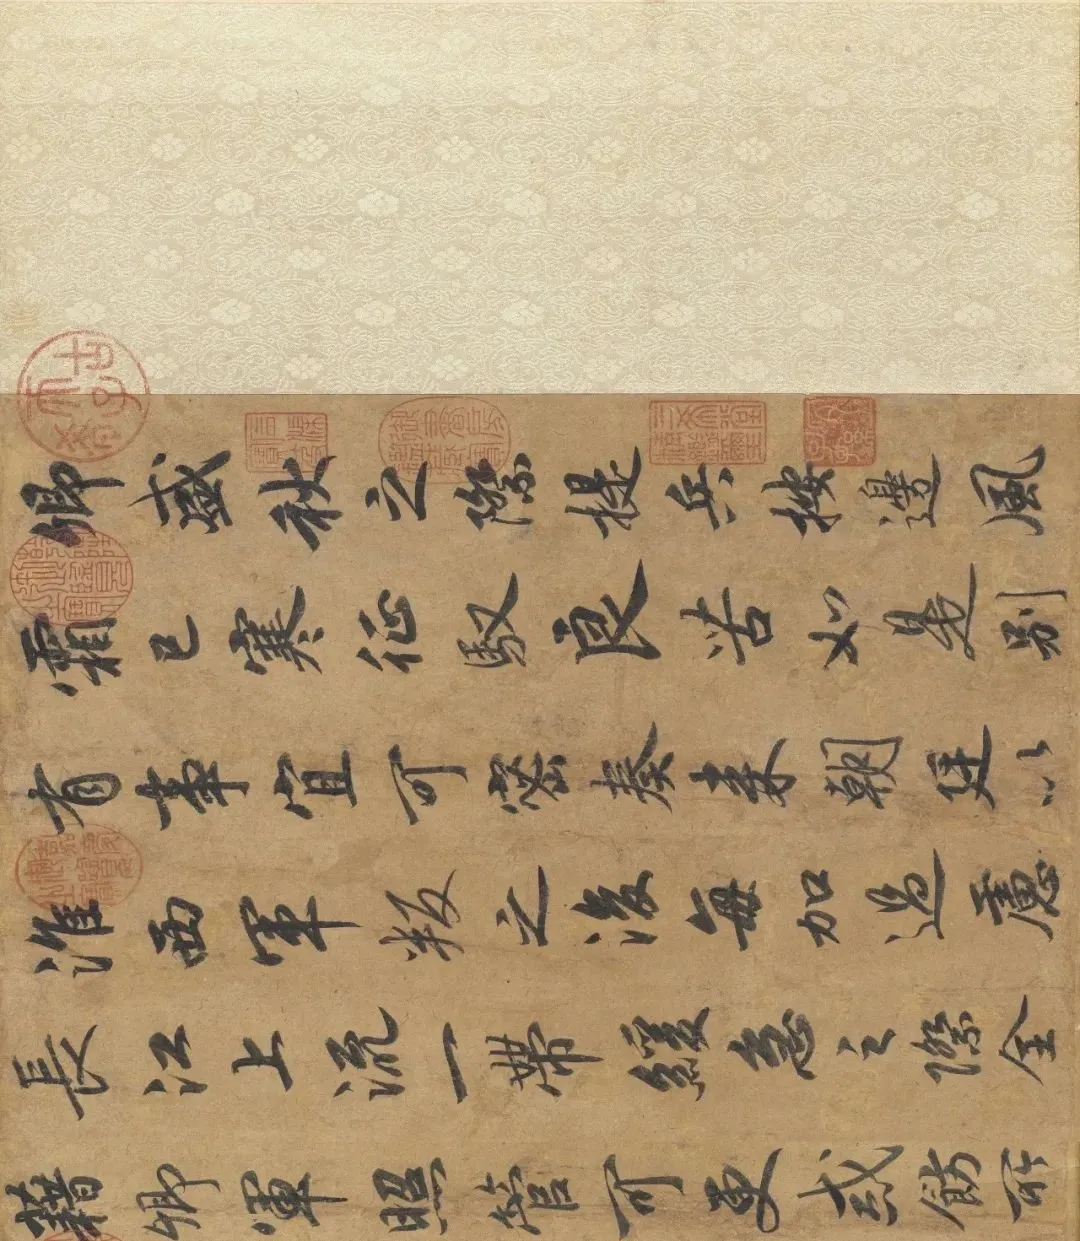 卿盛秋之際提兵按邊風
霜已寒征馭良苦如是別
有事宜可密奏来朝廷以
淮西軍叛之後每加過慮
長江上流一帶緩急之際全
藉卿軍照管可更戒飭所